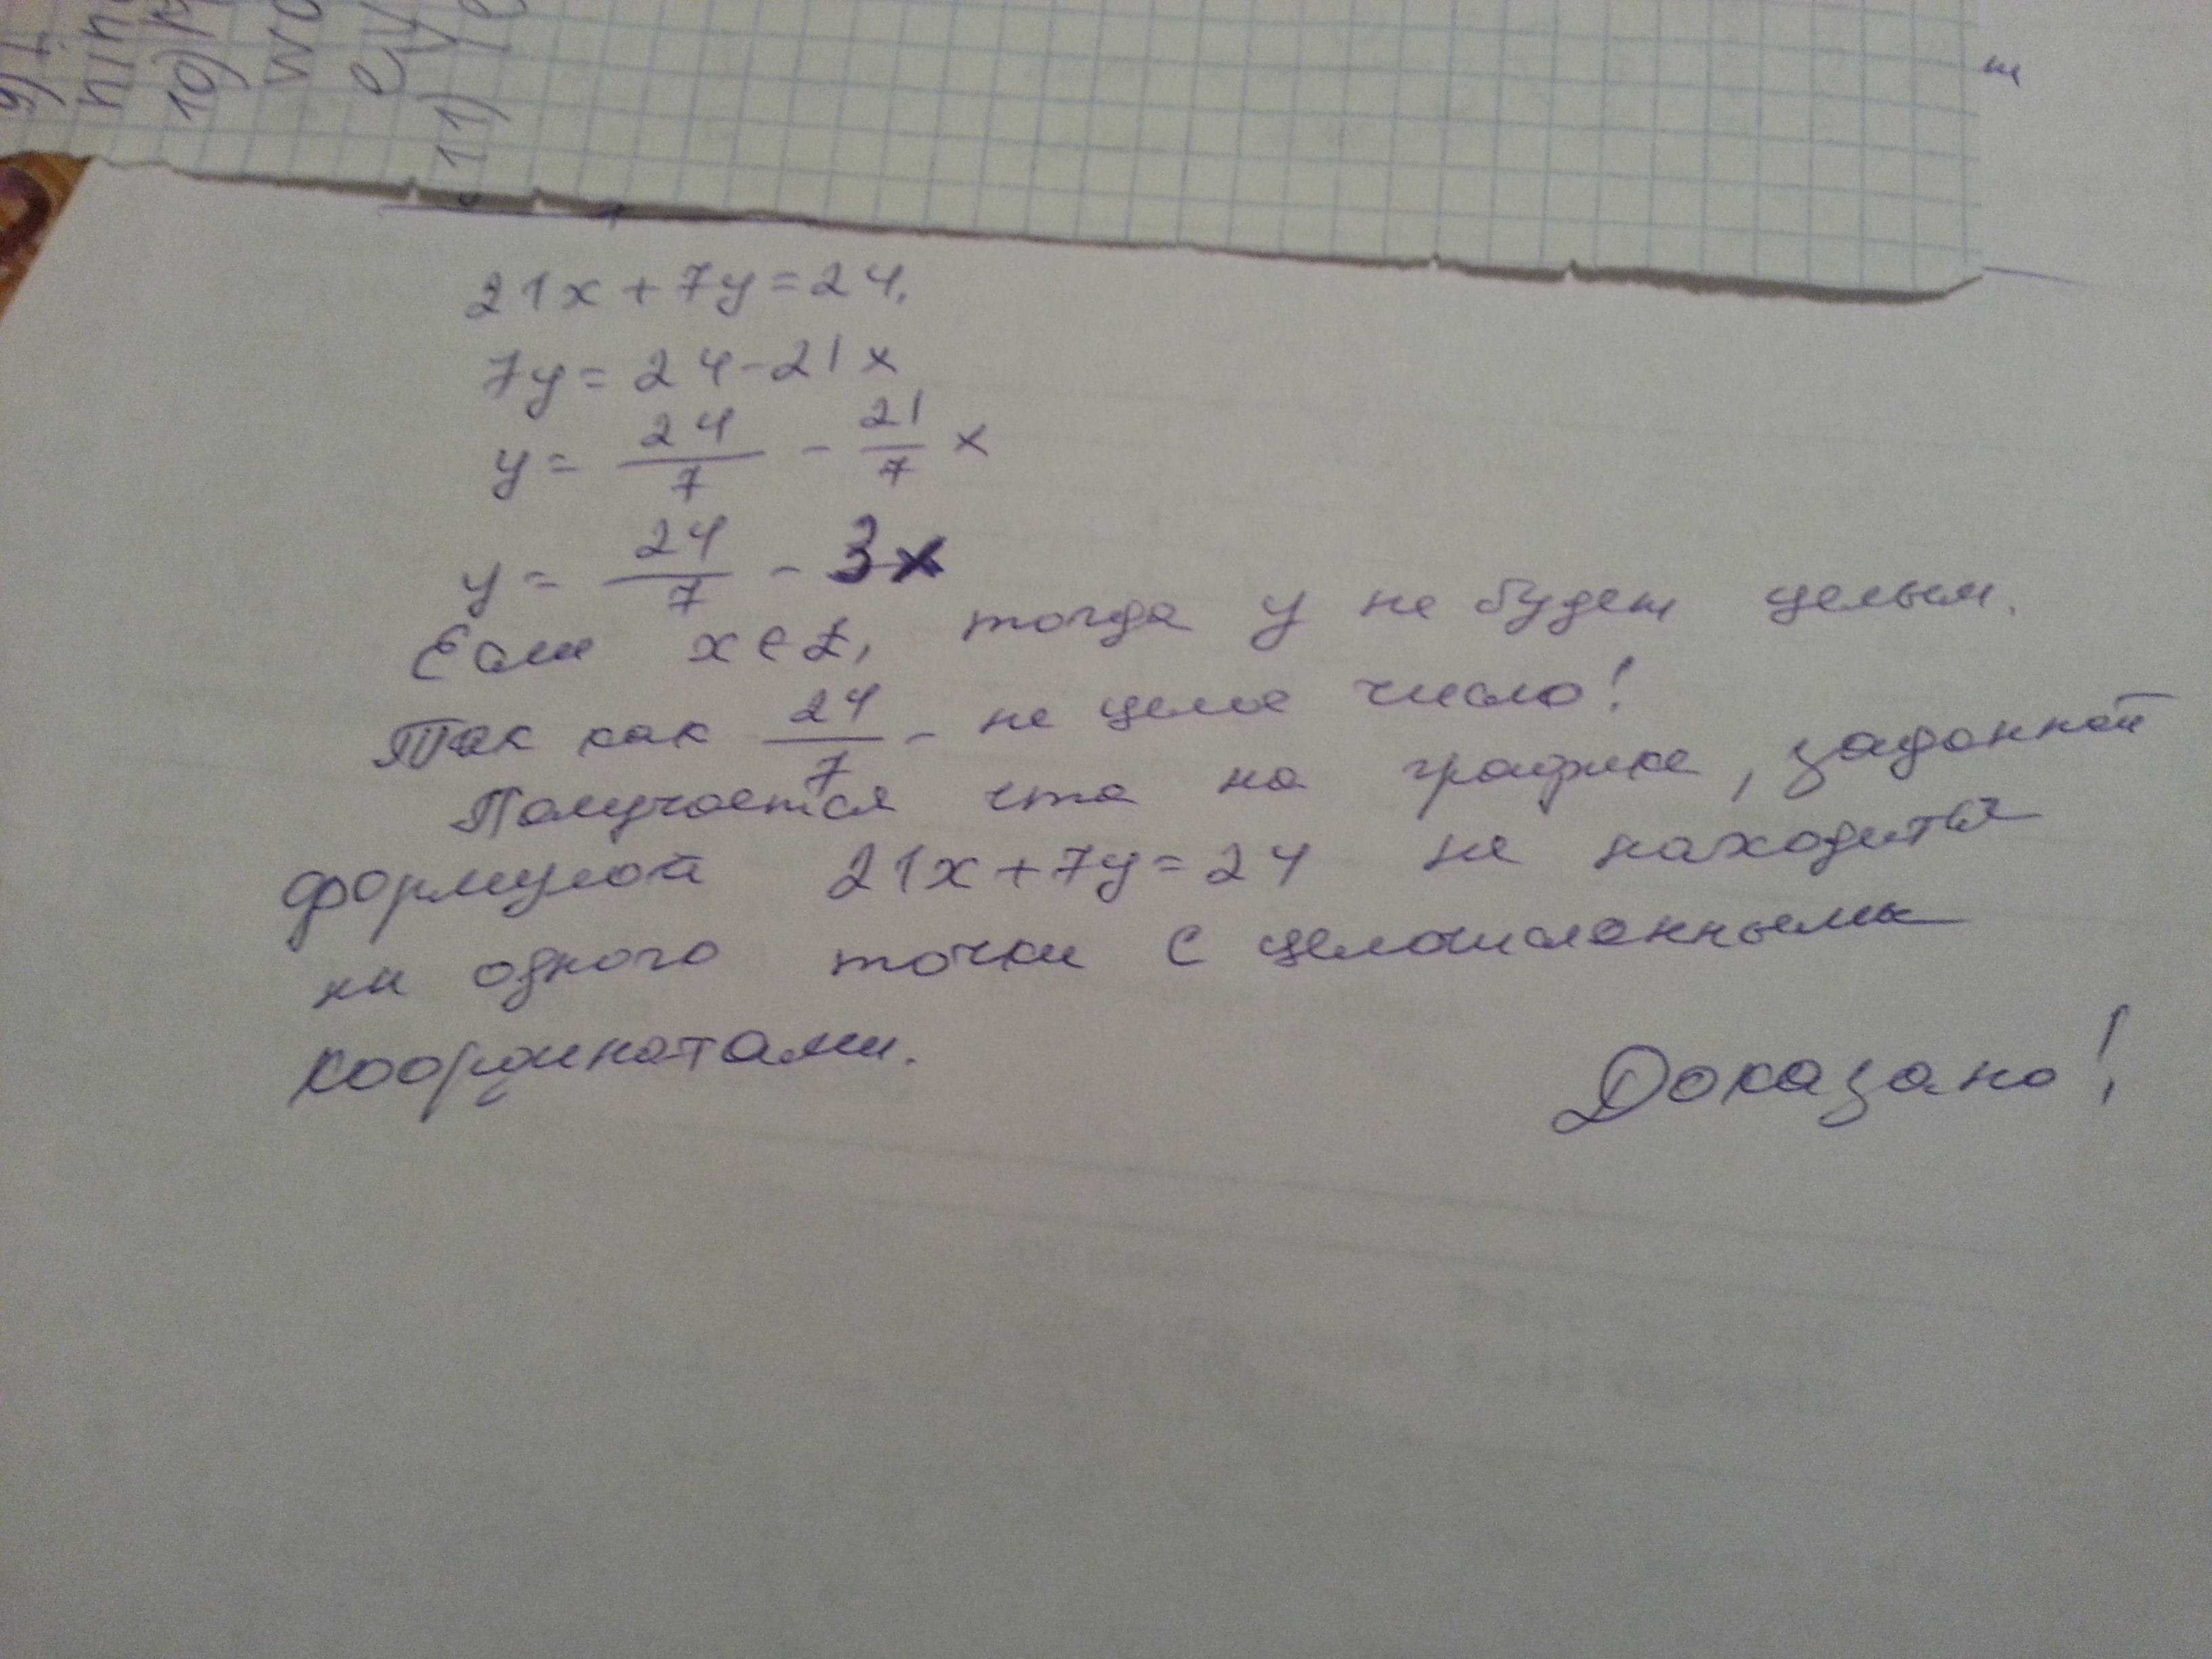 9) I
nin
10)
wo
ey
11) ye
m
21x + 7y = 24.
7y = 24 - 21x
y = 24/7 - 21/7 x
y = 24/7 - 3x
Если x ∈ Z, тогда y не будет целым.
Так как 24/7 - не целое число!
Получается что на графике, заданной
формулой 21x + 7y = 24 не находится
ни одного точки с целочисленными
координатами.
Доказано!